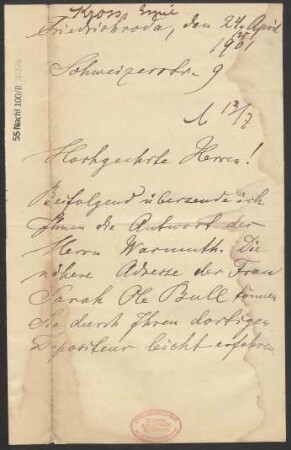 Kross Emil
Friedrichroda, den 24. April
1901
Schweizerstr. 9
13/7
Hochgeehrte Herren!
Beifolgend übersende ich
Ihnen die Antwort der
Herrn Warmuth. Die
nähere Adresse der Frau
Sarah Ole Bull können
Sie durch Ihren dortigen
Depositeur leicht erfahren
55 Nachl 100/B